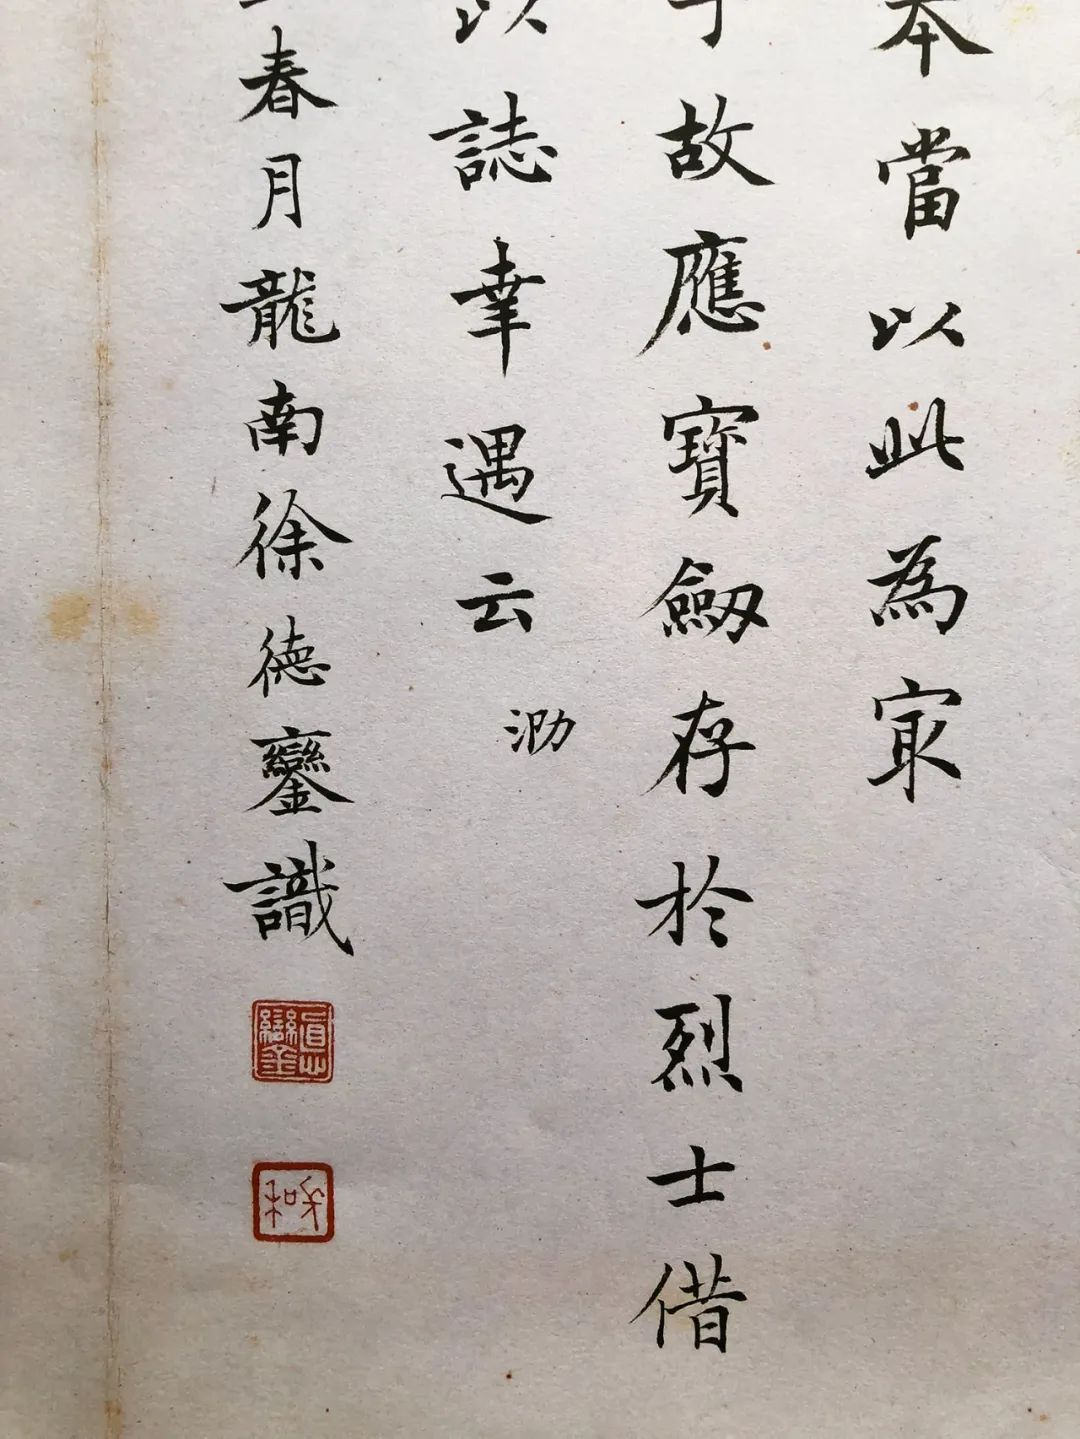 本當以此為冣
于故應寶劒存於烈士借
以誌幸遇云
泐
春月龍南徐德鑾識